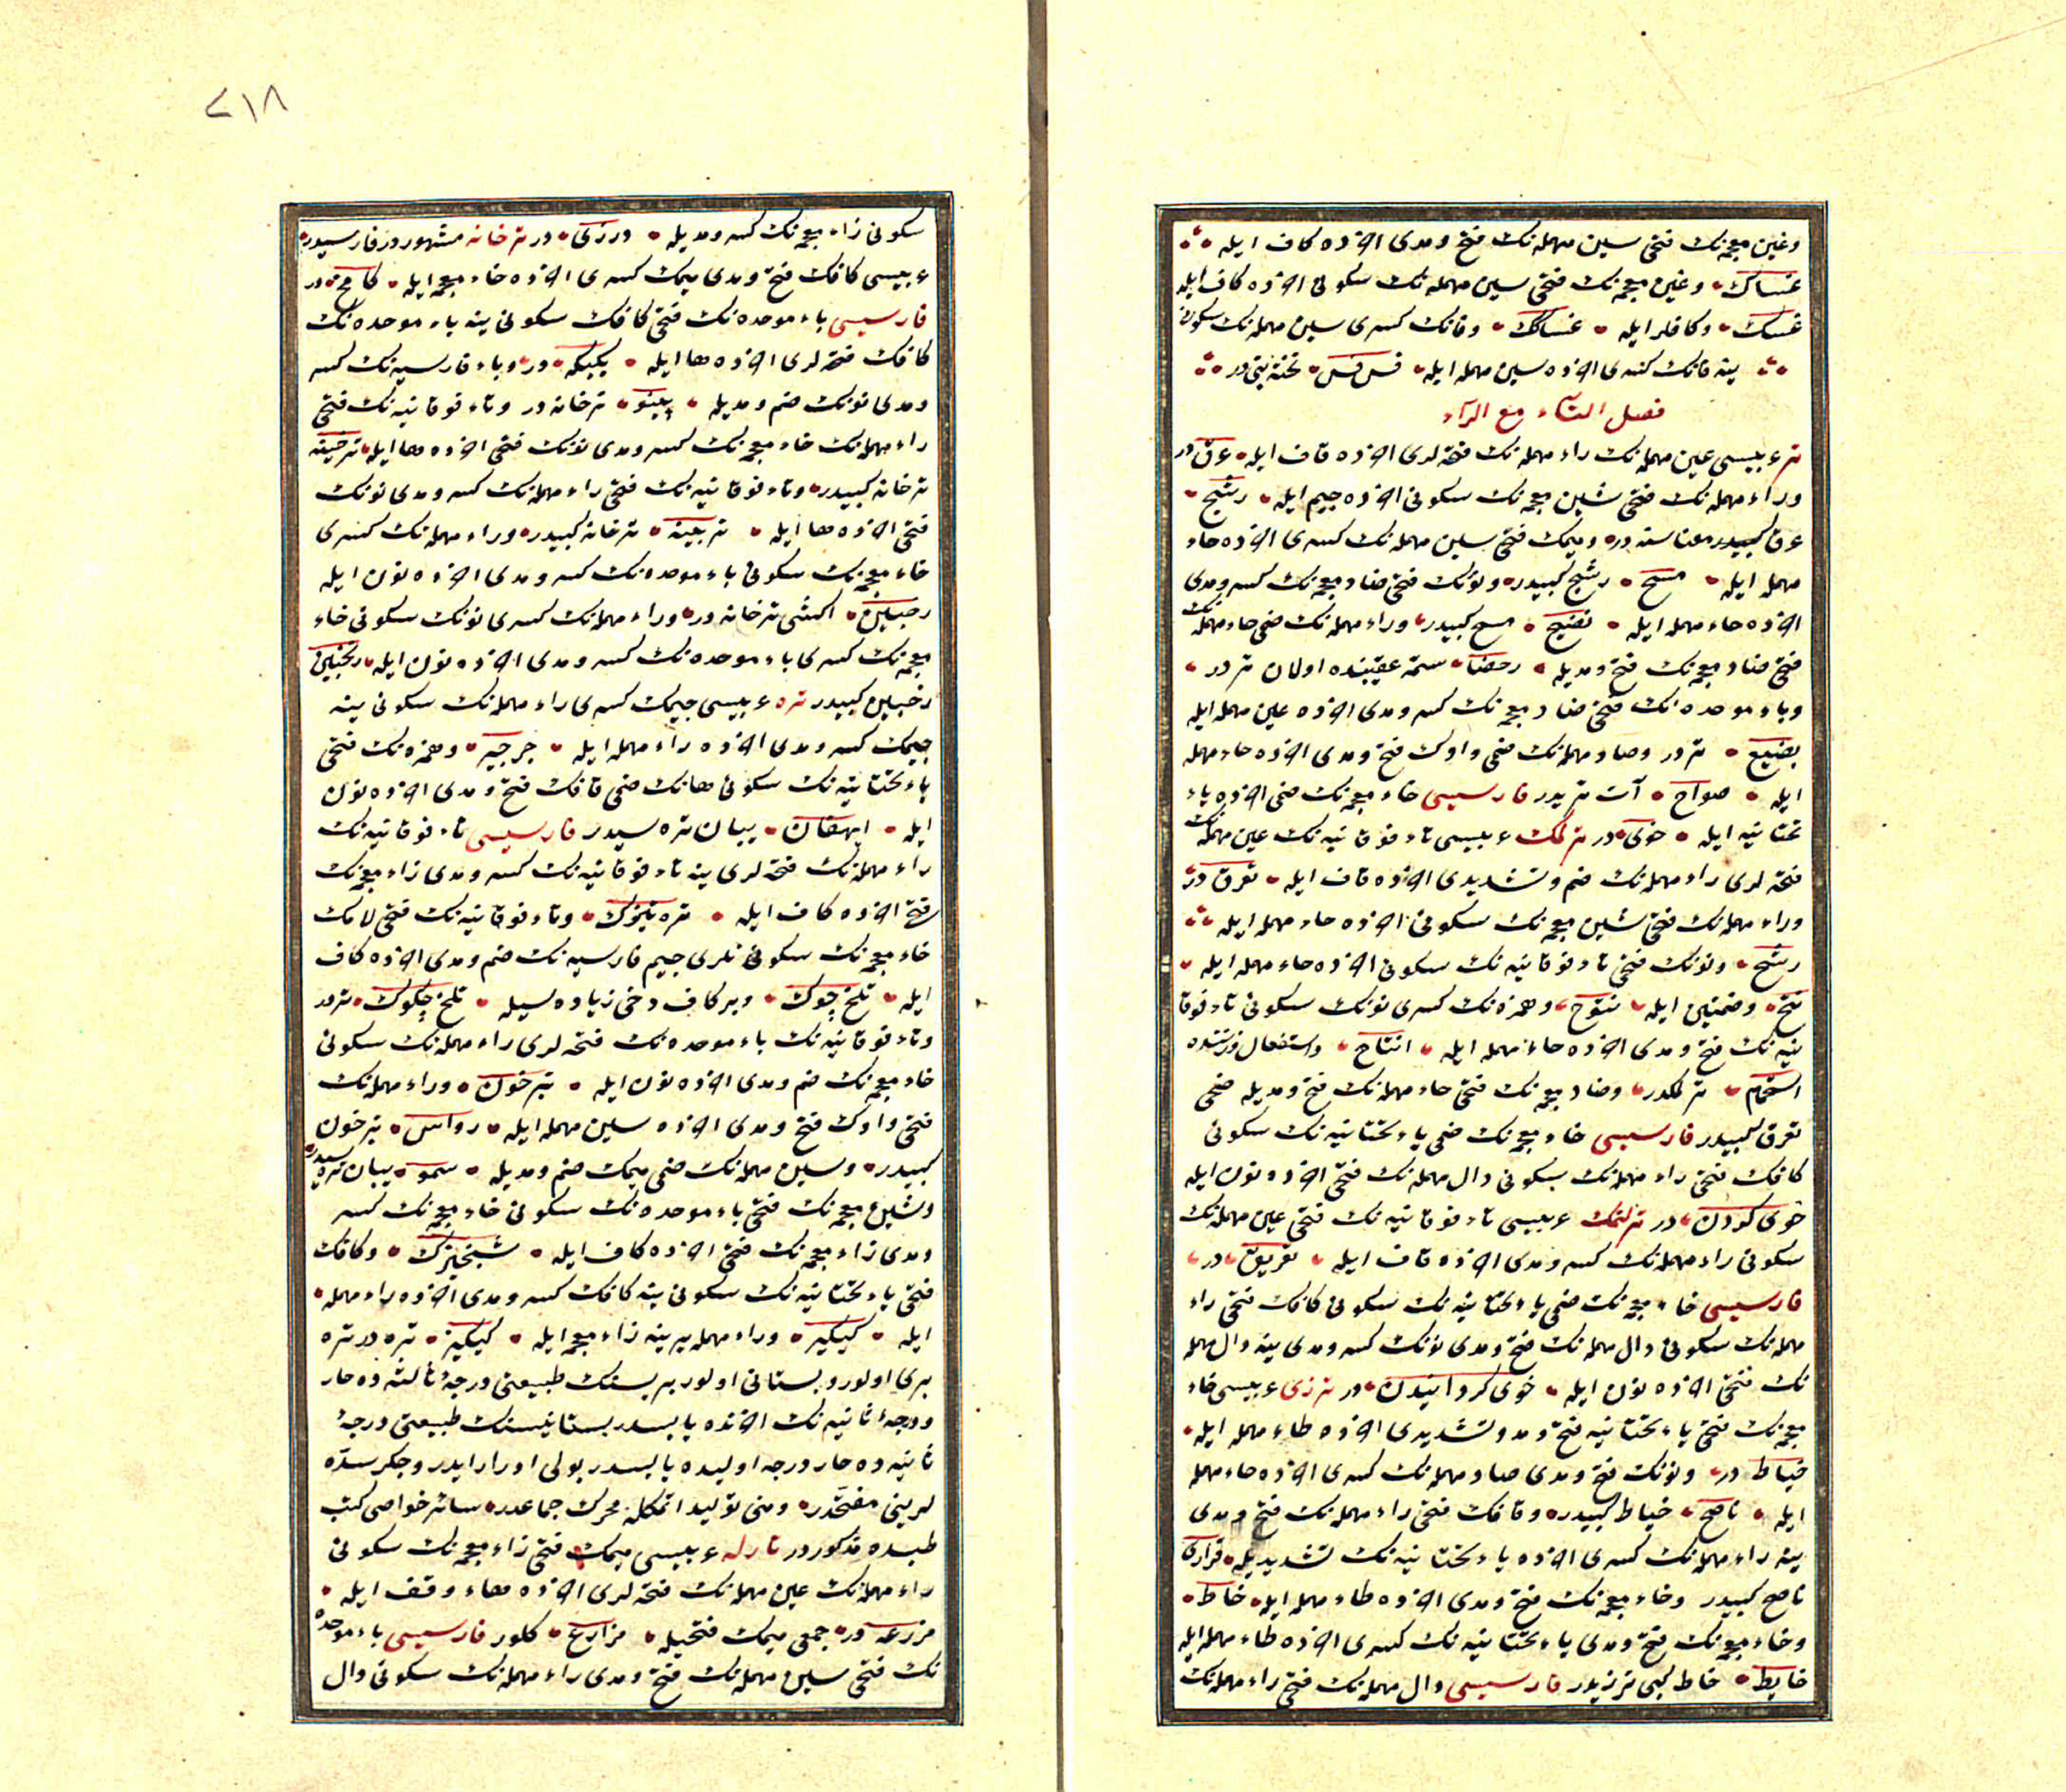 وغین معجمه‌نك فتحی سین مهمله‌نك فتح ومدی اخرده كاف ایله
غساك وغین معجمه‌نك فتحی سین مهمله‌نك سكونی اخرده كاف ایله
غسك وكافلر ایله غساكك وفانك كسری سین مهمله‌نك سكونی
ینه فانك كسری اخرده سین مهمله ایله فس فس تخته بتی در
فصل التاء مع الراء
تر عربیسی عین مهمله‌نك راء مهمله‌نك فتحه‌لری اخرده قاف ایله عرق در
وراء مهمله‌نك فتحی شین معجمه‌نك سكونی اخرده جیم ایله رشج
عرق كبیدر معناسنه در ومیمك فتحی سین مهمله‌نك كسری اخرده حاء
مهمله ایله مسح رشج كبیدر ونونك فتحی ضاد معجمه‌نك كسر ومدی
اخرده حاء مهمله ایله نضیح مسح كبیدر وراء مهمله‌نك ضمی حاء مهمله‌نك
فتحی ضاد معجمه‌نك فتح ومدیله رحضا ستمه عقبنده اولان تر در
وباء موحده‌نك فتحی ضاد معجمه‌نك كسر ومدی اخرده عین مهمله ایله
بضیع تر در وصاد مهمله‌نك ضمی واوك فتح ومدی اخرده حاء مهمله
ایله صواح آت تریدر فارسیسی خاء معجمه‌نك ضمی اخرده یاء
تحتانیه ایله خوی در ترلمك عربیسی تاء فوقانیه‌نك عین مهمله‌نك
فتحه‌لری راء مهمله‌نك ضم وتشدیدی اخرده قاف ایله تعرق در
وراء مهمله‌نك فتحی شین معجمه‌نك سكونی اخرده حاء مهمله ایله
رشح ونونك فتحی تاء فوقانیه‌نك سكونی اخرده حاء مهمله ایله
نتح وضمتین ایله نتوح وهمزه‌نك كسری نونك سكونی تاء فوقا
نیه‌نك فتح ومدی اخرده حاء مهمله ایله انتاح واستفعال وزننده
استحمام ترلمكدر وضاد معجمه‌نك فتحی حاء مهمله‌نك فتح ومدیله ضحی
تعرق كبیدر فارسیسی خاء معجمه‌نك ضمی یاء تحتانیه‌نك سكونی
كافك فتحی راء مهمله‌نك سكونی دال مهمله‌نك فتحی اخرده نون ایله
خوی كردن در ترلتمك عربیسی تاء فوقانیه‌نك فتحی عین مهمله‌نك
سكونی راء مهمله‌نك كسر ومدی اخرده قاف ایله تعریق در
فارسیسی خاء معجمه‌نك ضمی یاء تحتانیه‌نك سكونی كافك فتحی راء
مهمله‌نك سكونی دال مهمله‌نك فتح ومدی نونك كسر ومدی ینه دال مهمله
نك فتحی اخرده نون ایله خوی كردانیدن در ترزی عربیسی خاء
معجمه‌نك فتحی یاء تحتانیه فتح ومد وتشدیدی اخرده طاء مهمله ایله
خیاط در ونونك فتح ومدی صاد مهمله‌نك كسری اخرده حاء مهمله
ایله ناصح خیاط كبیدر وقافك فتحی راء مهمله‌نك فتح ومدی
ینه راء مهمله‌نك كسری اخرده یاء تحتانیه‌نك تشدیدیله قراری
ناصح كبیدر وخاء معجمه‌نك فتح ومدی اخرده طاء مهمله ایله خاط
وخاء معجمه‌نك فتح ومدی یاء تحتانیه‌نك كسری اخرده طاء مهمله ایله
خایط خاط كبی ترزیدر فارسیسی دال مهمله‌نك فتحی راء مهمله‌نك
٢١٨
سكونی زاء معجمه‌نك كسر ومدیله درزی در ترخانه مشهوردر فارسیدر
عربیسی كافك فتح ومدی میمك كسری اخرده خاء معجمه ایله كامخ در
فارسیسی باء موحده‌نك فتحی كافك سكونی ینه باء موحده‌نك
كافك فتحه‌لری اخرده ها ایله بكبكه در وباء فارسیه‌نك كسر
ومدی نونك ضم ومدیله پینو ترخانه در وتاء فوقانیه‌نك فتحی
راء مهمله‌نك خاء معجمه‌نك كسر ومدی نونك فتحی اخرده ها ایله ترخینه
ترخانه كبیدر وتاء فوقانیه‌نك فتحی راء مهمله‌نك كسر ومدی نونك
فتحی اخرده ها ایله ترینه ترخانه كبیدر وراء مهمله‌نك كسری
خاء معجمه‌نك سكونی باء موحده‌نك كسر ومدی اخرده نون ایله
رخبین اكشی ترخانه در وراء مهمله‌نك كسری نونك سكونی خاء
معجمه‌نك كسری باء موحده‌نك كسر ومدی اخرده نون ایله رنخبین
رخبین كبیدر تره عربیسی جیمك كسری راء مهمله‌نك سكونی ینه
جیمك كسر ومدی اخرده راء مهمله ایله جرجیر وهمزه‌نك فتحی
یاء تحتانیه‌نك سكونی هانك ضمی قافك فتح ومدی اخرده نون
ایله ایهقان یبان تره سیدر فارسیسی تاء فوقانیه‌نك
راء مهمله‌نك فتحه‌لری ینه تاء فوقانیه‌نك كسر ومدی زاء معجمه‌نك
فتح اخرده كاف ایله تره تیزك وتاء فوقانیه‌نك فتحی لامك
خاء معجمه‌نك سكونی‌لری جیم فارسیه‌نك ضم ومدی اخرده كاف
ایله تلخ چوك وبر كاف دخی زیاده‌سیله تلخ چكوك تره در
وتاء فوقانیه‌نك باء موحده‌نك فتحه‌لری راء مهمله‌نك سكونی
خاء معجمه‌نك ضم ومدی اخرده نون ایله تبرخون وراء مهمله‌نك
فتحی واوك فتح ومدی اخرده سین مهمله ایله رواس تبرخون
كبیدر وسین مهمله‌نك ضمی میمك ضم ومدیله سمو یبان تره سیدر
وشین معجمه‌نك فتحی باء موحده‌نك سكونی خاء معجمه‌نك كسر
ومدی زاء معجمه‌نك فتحی اخرده كاف ایله شبخیزك وكافك
فتحی یاء تحتانیه‌نك سكونی ینه كافك كسر ومدی اخرده راء مهمله
ایله كیكیر وراء مهمله یرینه زاء معجمه ایله كیكیز تره در تره
بری اولور وبستانی اولور بریسنك طبیعتی درجهٔ ثالثه ده حار
ودرجهٔ ثانیه‌نك اخرنده یابسدر بستانیسنك طبیعتی درجهٔ
ثانیه ده حار درجه اولیده یابسدر بولی ادرار ایدر وجكر سده
لرینی مفتحدر ومنی تولید اتمكله محرك جماعدر سائر خواصی كتب
طبده مذكوردر تارلە عربیسی میمك فتحی زاء معجمه‌نك سكونی
راء مهمله‌نك عین مهمله‌نك فتحه‌لری اخرده هاء وقف ایله
مزرعه در جمعی میمك فتحیله مزارع كلور فارسیسی باء موحده
نك فتحی سین مهمله‌نك فتح ومدی راء مهمله‌نك سكونی دال